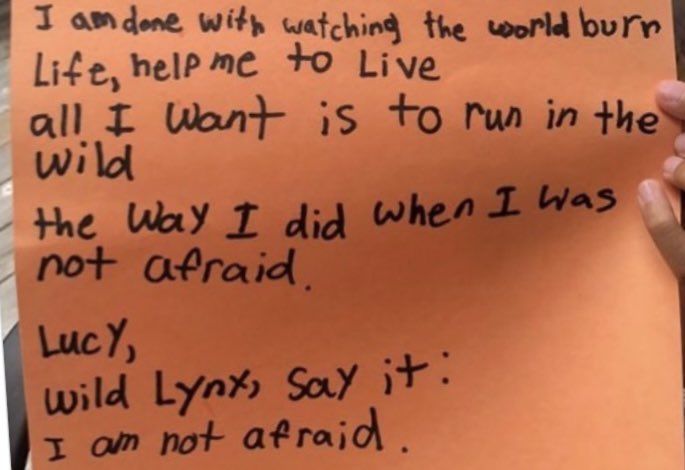 I am done with watching the world burn
Life, help me to Live
all I want is to run in the
wild
the way I did when I was
not afraid.
Lucy,
wild Lynx, say it:
I am not afraid.